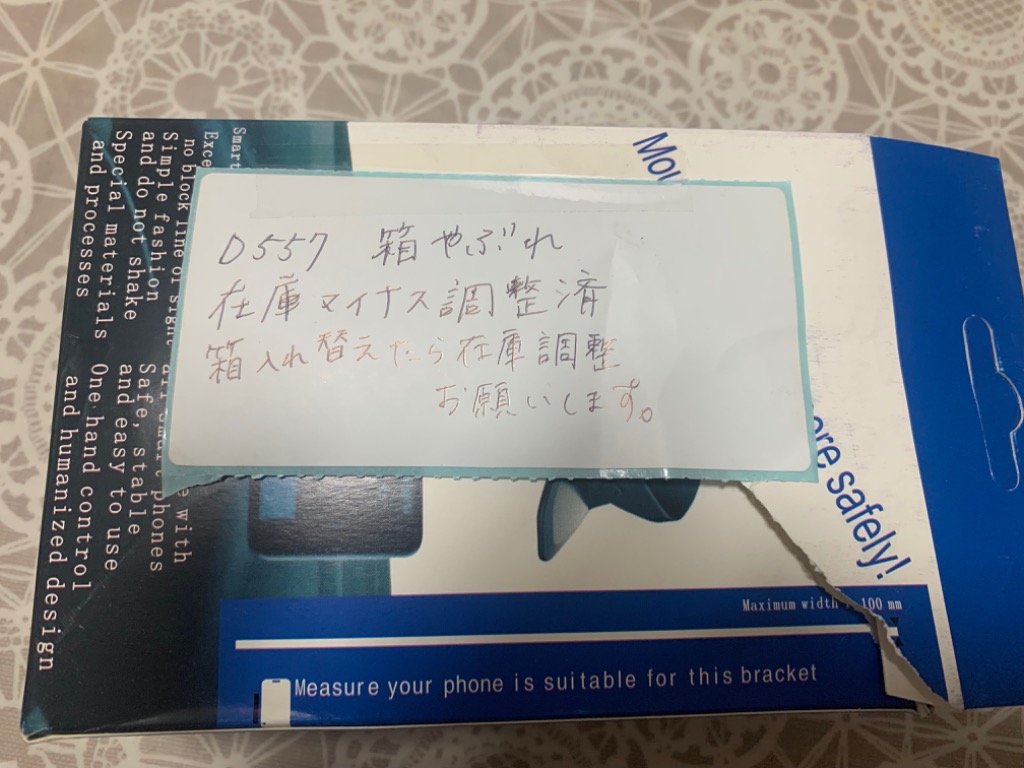 D557 箱やぶれ
在庫マイナス調整済
箱入れ替えたら在庫調整
お願いします。
Mou
ere safely!
Smart
no block line of sight all smart phones
Simple fashion Safe, stable
and do not shake and easy to use
Special materials One hand control
and processes and humanized design
with
Maximum width : 100 mm
Measure your phone is suitable for this bracket